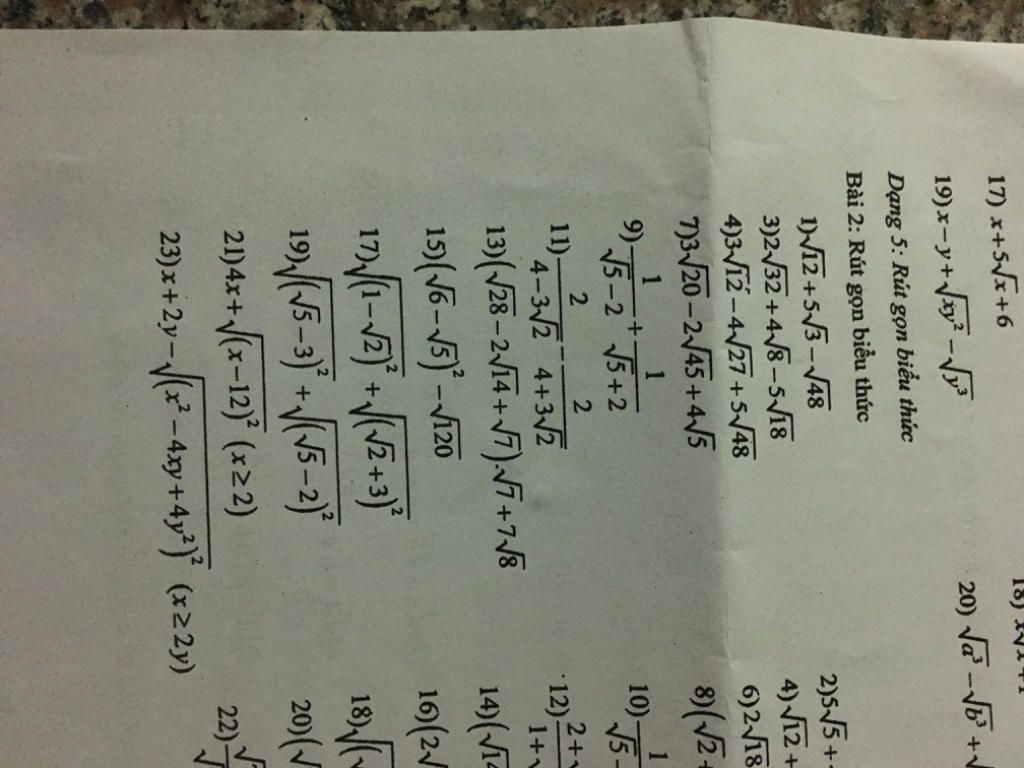 17) x+5√x+6
18) x√x+1
19)x−y+√(xy²)−√(y³)
20) √(a³)−√(b³)+√
Dạng 5: Rút gọn biểu thức
Bài 2: Rút gọn biểu thức
1)√12+5√3−√48
2)5√5+
3)2√32+4√8−5√18
4)√12+
4)3√12−4√27+5√48
6)2√18
7)3√20−2√45+4√5
8)(√2+
9) 1/(√5−2) + 1/(√5+2)
10) 1/(√5−
11) 2/(4−3√2) − 2/(4+3√2)
12) (2+√)/(1+√
13)(√28−2√14+√7).√7+7√8
14)(√14
15)(√6−√5)²−√120
16)(2√
17)√((1−√2)²)+√((√2+3)²)
18)√(√
19)√((√5−3)²)+√((√5−2)²)
20)(√
21)4x+√((x−12)²) (x≥2)
22)√/√
23)x+2y−√((x²−4xy+4y²)²) (x≥2y)